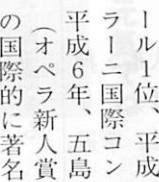 ール1位、平成
ラーニ国際コン
平成6年、五島
(オペラ新人賞
の国際的に著名